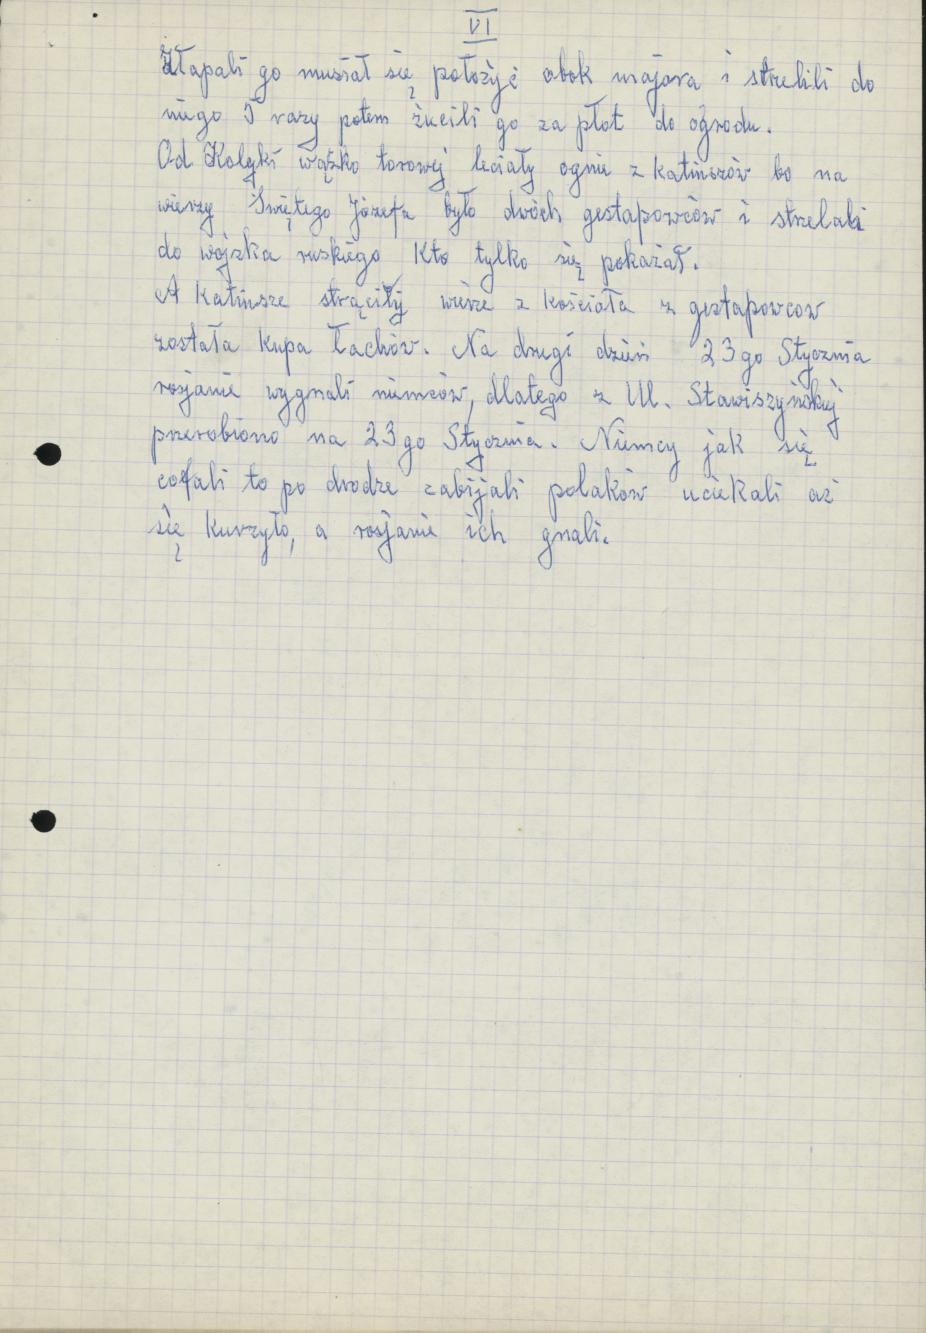 VI
Złapali go musiał się położyć obok majora i strelili do
niego 5 razy potem żucili go za płot do ogrodu.
Od Kolejki wązko torowej leciały ognie z katinszów bo na
wierzy Świętego Józefa było dwóch gestapowców i strzelali
do wojska ruskiego Kto tylko się pokazał.
A katinsze strąciły wierze z kościała z gestapowcow
została kupa łachów. Na drugi dzień 23 go Stycznia
rosjanie wygnali niemców, dlatego z Ul. Stawiszyńskiej
przerobiono na 23 go Stycznia. Niemcy jak się
cofali to po drodze zabijali polaków uciekali aż
się kurzyło, a rosjanie ich gnali.